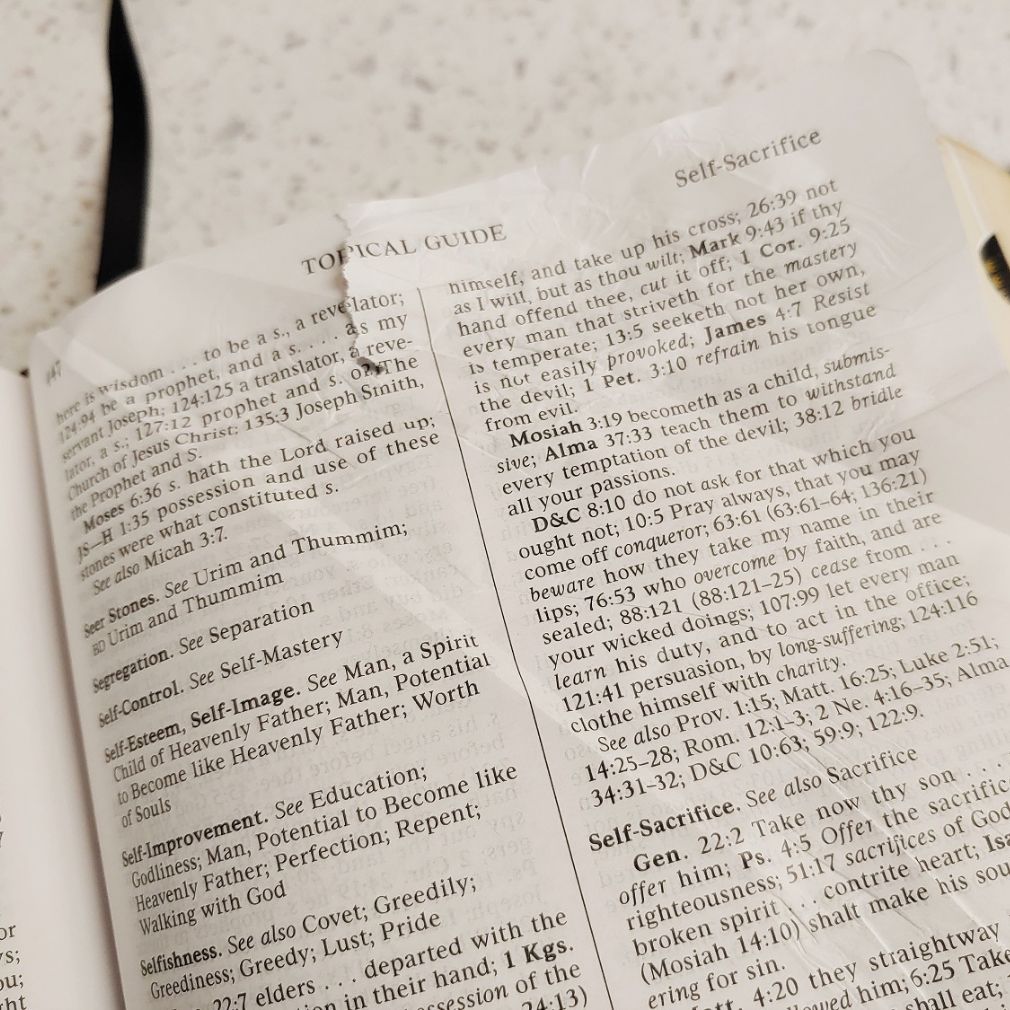 TOPICAL GUIDE
Self-Sacrifice
here is wisdom . . . to be a s., a revelator;
124:94 be a prophet, and a s. . . . as my
servant Joseph; 124:125 a translator, a reve-
lator, a s.; 127:12 prophet and s. of The
Church of Jesus Christ; 135:3 Joseph Smith,
the Prophet and S.
Moses 6:36 s. hath the Lord raised up;
JS—H 1:35 possession and use of these
stones were what constituted s.
See also Micah 3:7.
Seer Stones. See Urim and Thummim;
BD Urim and Thummim
Segregation. See Separation
Self-Control. See Self-Mastery
Self-Esteem, Self-Image. See Man, a Spirit
Child of Heavenly Father; Man, Potential
to Become like Heavenly Father; Worth
of Souls
Self-Improvement. See Education;
Godliness; Man, Potential to Become like
Heavenly Father; Perfection; Repent;
Walking with God
Selfishness. See also Covet; Greedily;
Greediness; Greedy; Lust; Pride
22:7 elders . . . departed with the
in their hand; 1 Kgs.
of the
24:13)
himself, and take up his cross; 26:39 not
as I will, but as thou wilt; Mark 9:43 if thy
hand offend thee, cut it off; 1 Cor. 9:25
every man that striveth for the mastery
is temperate; 13:5 seeketh not her own,
is not easily provoked; James 4:7 Resist
the devil; 1 Pet. 3:10 refrain his tongue
from evil.
Mosiah 3:19 becometh as a child, submis-
sive; Alma 37:33 teach them to withstand
every temptation of the devil; 38:12 bridle
all your passions.
D&C 8:10 do not ask for that which you
ought not; 10:5 Pray always, that you may
come off conqueror; 63:61 (63:61–64; 136:21)
beware how they take my name in their
lips; 76:53 who overcome by faith, and are
sealed; 88:121 (88:121–25) cease from . . .
your wicked doings; 107:99 let every man
learn his duty, and to act in the office;
121:41 persuasion, by long-suffering; 124:116
clothe himself with charity.
See also Prov. 1:15; Matt. 16:25; Luke 2:51;
14:25–28; Rom. 12:1–3; 2 Ne. 4:16–35; Alma
34:31–32; D&C 10:63; 59:9; 122:9.
Self-Sacrifice. See also Sacrifice
Gen. 22:2 Take now thy son . . .
offer him; Ps. 4:5 Offer the
righteousness; 51:17 sacrifices of God
broken spirit . . . contrite heart;
(Mosiah 14:10) shalt make his
ering for sin.
4:20 they straightway
him; 6:25 Take
shall eat;